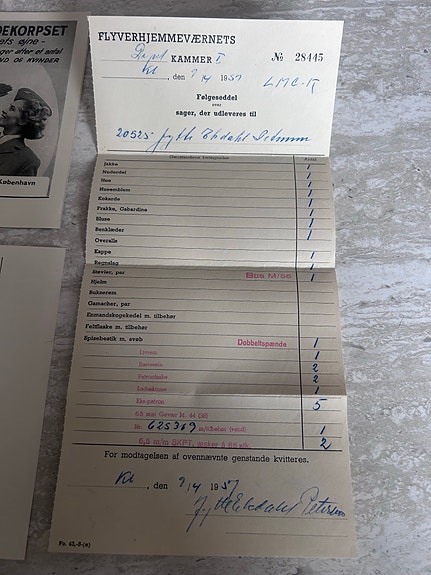 DEKORPSET
ets øjne -
ager efter et antal
ND OG KVINDER
København
FLYVERHJEMMEVÆRNETS
KAMMER I
№ 28445
, den 9/4 1957
LMC-K
Følgeseddel
over
sager, der udleveres til
20525 Jytte Ekdahl Petersen
Genstandens betegnelse Antal
Jakke 1
Nederdel 1
Hue 1
Husemblem 1
Kokarde 1
Frakke, Gabardine 1
Bluse 1
Benklæder 1
Overalls
Kappe 1
Regnslag 1
Støvler, par 1
Hjelm
Rukserem
Gamacher, par
Enmandskogekedel m. tilbehør
Feltflaske m. tilbehør
Spisebestik m. svøb Dobbeltspænde 1
1
Bæresele 2
Patrontaske 2
Ladeskinne 1
Eks-patron 5
6.5 mm Gevær M. 44 (38)
Nr. 625369 m/tilbehør (rend) 1
6,5 m/m SKPT, æsker á 65 stk. 2
For modtagelsen af ovennævnte genstande kvitteres.
Kh , den 9/4 1957
Jytte Ekdahl Petersen
Fo. 63,-8-(a)